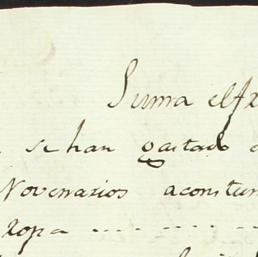 Suma el
se han gastado
Novenarios acostum
ropa